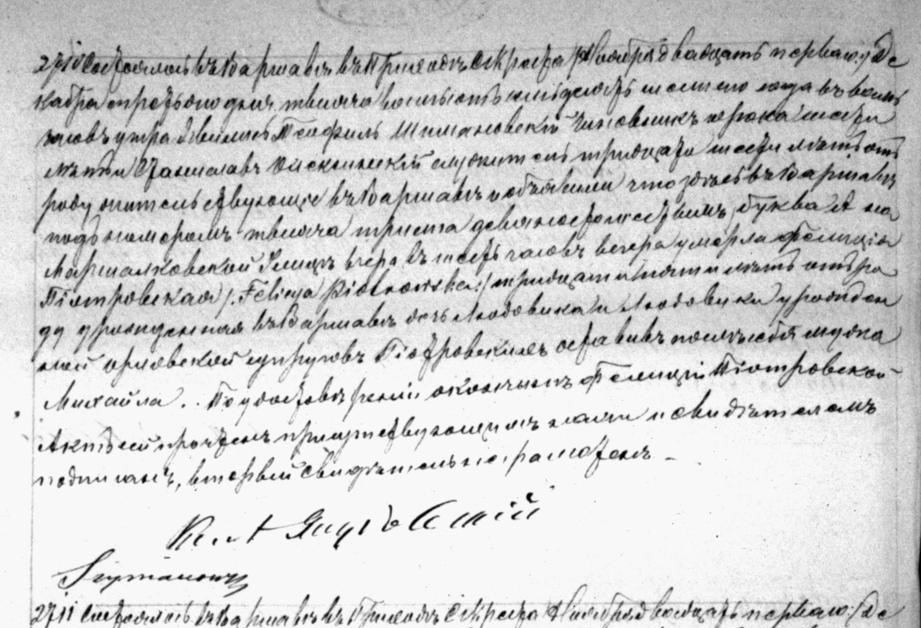 2710 Состоялось въ Варшавѣ въ Приходѣ С. Креста Ноября двадцать перваго / Де
кабря третьяго дня тысяча восемьсотъ года въ восемь
часовъ утра явились Теофиль Шимановскій Чиновникъ сорока шести
лѣтъ и Станиславъ служитель тридцати шести лѣтъ отъ
роду жительствующіе въ Варшавѣ и объявили что здѣсь въ Варшавѣ
подъ номеромъ тысяча триста девяносто шестымъ буква А на
Маршалковской Улицѣ вчера въ шесть часовъ вечера умерла Фелиція
Піотровская /: Felicya Piotrowska :/ тридцати пяти лѣтъ отъ ро
ду урожденная въ Варшавѣ дочь Людовика и Людовики урожден
ной Орловской супруговъ Піотровскихъ оставивъ послѣ себя мужа
Михайла. По удостовѣреніи о кончинѣ Фелиціи Піотровской
Актъ сей прочтенъ присутствующимъ нами и свидѣтелемъ
подписанъ, второй свидѣтель неграмотенъ
Кс. А.
Szymanows
2711 Состоялось въ Варшавѣ въ Приходѣ С. Креста Ноября двадцать перваго / Де